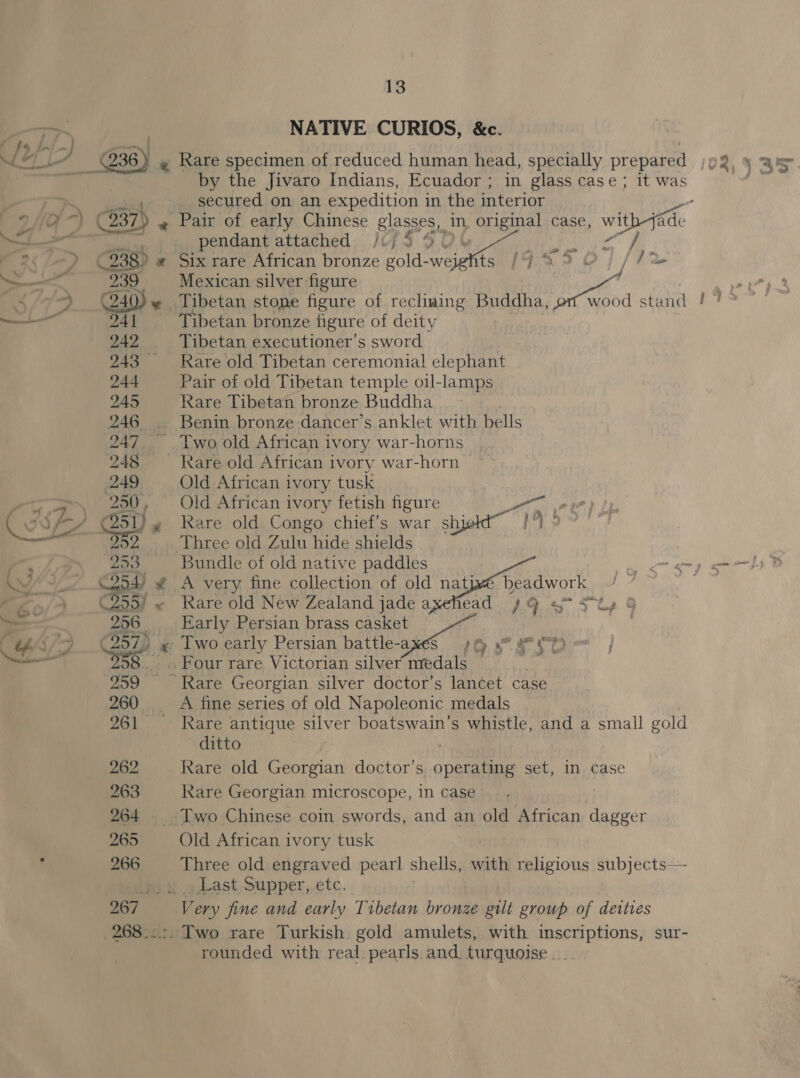 13
NATIVE CURIOS, &c.
236 Rare specimen of reduced human head, specially prepared
by the Jivaro Indians, Ecuador; in glass case; it was
secured on an expedition in the interior
237 Pair of early Chinese glasses, in original case, with jade
pendant attached
238 Six rare African bronze gold-weights
239 Mexican silver figure
240 Tibetan stone figure of reclining Buddha, on wood stand
241 Tibetan bronze figure of deity
242 Tibetan executioner's sword
243 Rare old Tibetan ceremonial elephant
244 Pair of old Tibetan temple oil-lamps
245 Rare Tibetan bronze Buddha
246 Benin bronze dancer's anklet with bells
247 Two old African ivory war-horns
248 Rare old African ivory war-horn
249 Old African ivory tusk
250 Old African ivory fetish figure
251 Rare old Congo chief's war shield
252 Three old Zulu hide shields
253 Bundle of old native paddles
254 A very fine collection of old native beadwork
255 Rare old New Zealand jade axehead
256 Early Persian brass casket
257 Two early Persian battle-axes
258 Four rare Victorian silver medals
259 Rare Georgian silver doctor's lancet case
260 A fine series of old Napoleonic medals
261 Rare antique silver boatswain's whistle, and a small gold
ditto
262 Rare old Georgian doctor's operating set, in case
263 Rare Georgian microscope, in case
264 Two Chinese coin swords, and an old African dagger
265 Old African ivory tusk
266 Three old engraved pearl shells, with religious subjects—
Last Supper, etc.
267 Very fine and early Tibetan bronze gilt group of deities
268 Two rare Turkish gold amulets, with inscriptions, sur-
rounded with real pearls and turquoise